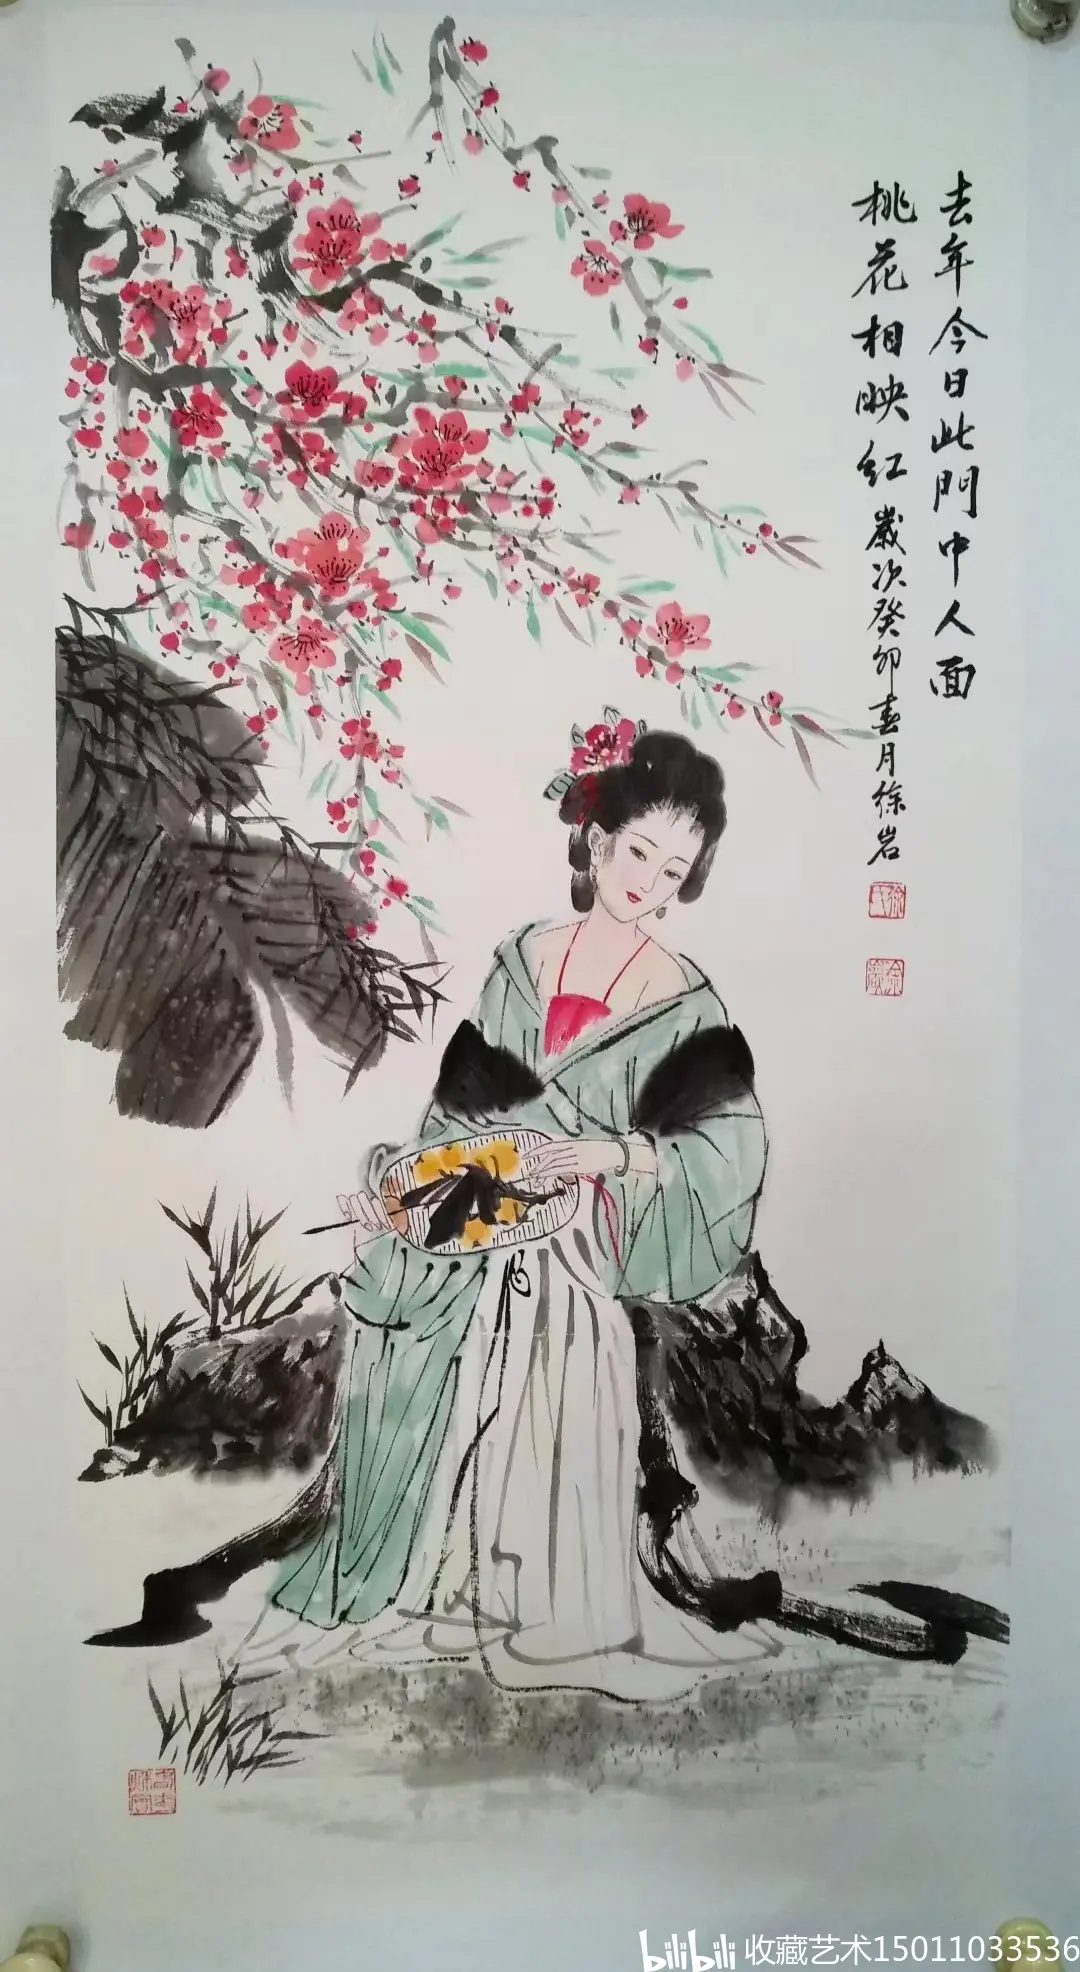 去年今日此門中人面
桃花相映红 歲次癸卯春月徐岩
bilibili 收藏艺术15011033536